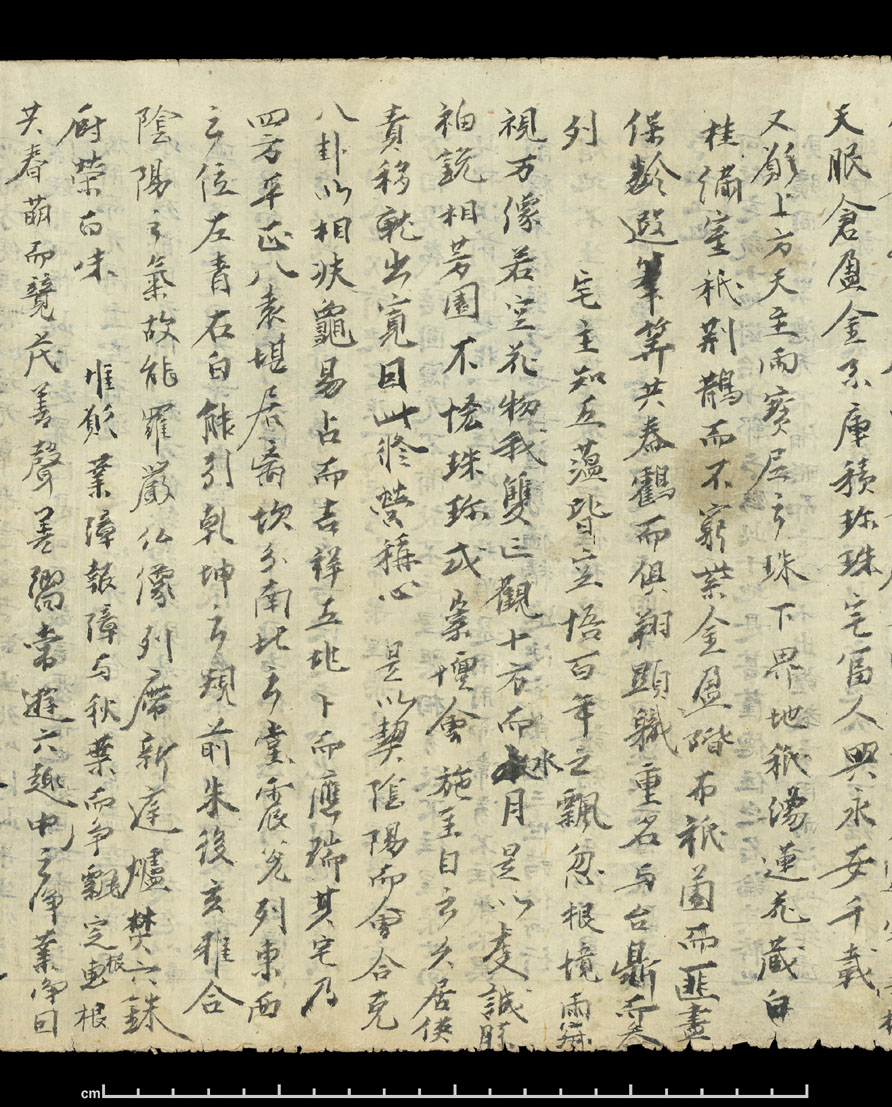 天眼倉盈金系庫積珎珠宅富人興永安千載
又願上方天主雨寳尼之珠下界地祇湯蓮花藏
桂滿室祇荆鵲而不窮紫金盈階布祇薗而匪盡
保齡遐筭共春鶴而俱翔顯軄重名与台鼎而
列　宅主知五薀皆空悟百年之飄忽根境兩
視万像若空花物我雙亡觀十方而水月是以虔誠
袖說相芳園不悋珠珎或崇壇會　施主自云久居
責移乹出寛因此修營稱心　是以契陰陽而會合克
八卦以相扶龜易占而吉祥五地卜而應瑞其宅乃
四方平正八表堪居离坎分南北之堂震兌列東西
之位左青右白能引乹坤之規前朱後玄雅合
陰陽之氣故能羅嚴仏像列席新庭爐焚六銖
厨榮百味　惟願業障報障与秋葉而争飄定根惠根
共春萌而競茂善聲善嚮常遊六趣中之净業净因